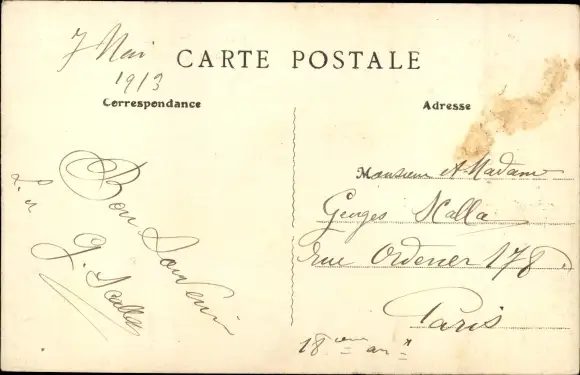 7 Mai
1913
CARTE POSTALE
Correspondance
Bon Souvenir
G. Scalla
Adresse
Monsieur et Madame
Georges Scalla
rue Ordener 178.
Paris
18eme arr